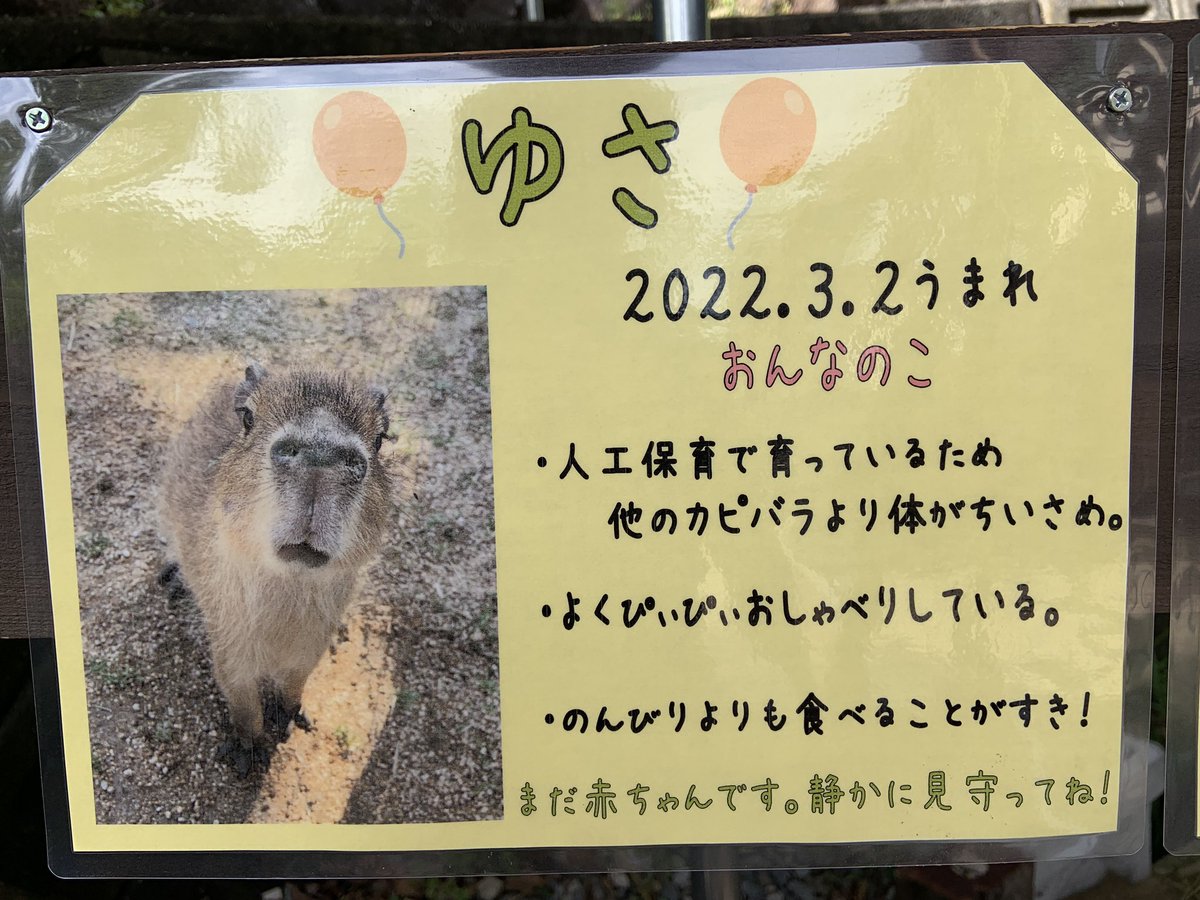 ゆさ
2022.3.2うまれ
おんなのこ
・人工保育で育っているため
他のカピバラより体がちいさめ。
・よくぴぃぴぃおしゃべりしている。
・のんびりよりも食べることがすき!
まだ赤ちゃんです。静かに見守ってね!